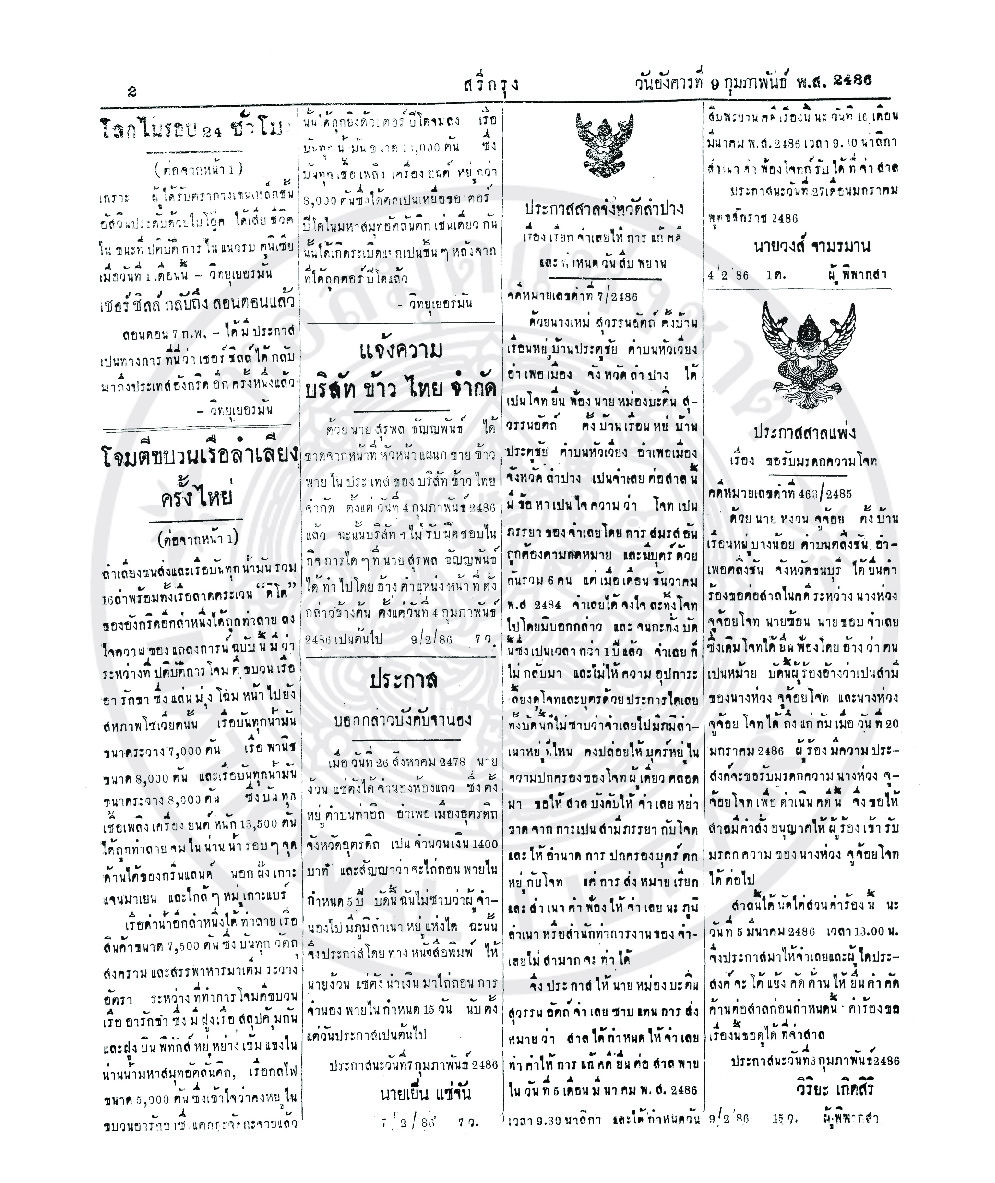 2
สรีกรุง
วันอังคารที่ 9 กุมภาพันธ์ พ.ส. 2486
โลกไนรอบ 24 ชั่วโมง
(ต่อจากหน้า 1)
เกราะ ผู้ได้รับตรากางเขนเหล็กชั้น
อัสวินประดับด้วยไบโอ๊ค ได้เสียชีวิต
ไนขนะที่ปติบัติการไนแนวรบตูนิเซีย
เมื่อวันที่ 1 เดือนนี้ – วิทยุเยอรมัน
เชอร์ชิลล์กลับถึงลอนดอนแล้ว
ลอนดอน 7 ก.พ. – ได้มีประกาส
เปนทางการที่นี่ว่าเชอร์ชิลล์ได้กลับ
มาถึงประเทสอังกริดอีกครั้งหนึ่งแล้ว
– วิทยุเยอรมัน
โจมตีขบวนเรือลำเลียง
ครั้งไหย่
(ต่อจากหน้า 1)
ลำเลียงขนส่งและเรือบันทุกน้ำมันรวม
16 ลำพร้อมทั้งเรือลาดตระเวน “ดิโด”
ของอังกริดอีกลำหนึ่งได้ถูกทำลายลง
ไจความของแถลงการน์ฉบับนี้มีว่า
ระหว่างที่ปติบัติการโจมตีขบวนเรือ
อารักขาซึ่งแล่นมุ่งโฉมหน้าไปยัง
สหภาพโซเวียตนั้น เรือบันทุกน้ำมัน
ขนาดระวาง 7,000 ตัน เรือพานิช
ขนาด 8,000 ตัน และเรือบันทุกน้ำมัน
ขนาดระวาง 8,000 ตัน ซึ่งบันทุก
เชื้อเพลิงเครื่องยนต์หนัก 13,500 ตัน
ได้ถูกทำลายจมไนน่านน้ำรอบๆจุด
ด้านไต้ของกรีนแลนด์ นอกฝั่งเกาะ
แจนมาเยน และไกล้ๆหมู่เกาะแบร์
เรือดำน้ำอีกลำหนึ่งได้ทำลายเรือ
สินค้าขนาด 7,500 ตันซึ่งบันทุกวัตถุ
สงครามและสรรพาหารมาเต็มระวาง
อัตรา ระหว่างที่ทำการโจมตีขบวน
เรืออารักขาซึ่งมีฝูงเรือสลุปคุ้มกัน
และฝูงบินพิทักส์หยู่หย่างเข้มแขงไน
น่านน้ำมหาสมุทอตลันติก, เรือกลไฟ
ขนาด 5,000 ตันซึ่งเข้าไจว่าคงหยู่ไน
นั้นได้ถูกยิงด้วยตอร์ปิโดจมลง เรือ
บันทุกน้ำมันขนาด
บันทุกเชื้อเพลิงเครื่องยนต์หยู่กว่า
8,000 ตันซึ่งได้ตกเปนเหยื่อของตอร์
ปิโดไนมหาสมุทอตลันติกเช่นเดียวกัน
นั้นได้เกิดระเบิดแตกเปนชิ้นๆหลังจาก
ที่ได้ถูกตอร์ปิโดแล้ว
– วิทยุเยอรมัน
แจ้งความ
บริสัท ข้าว ไทย จำกัด
ด้วยนายสุรพล ธัญญพันธ์ ได้
ขาดจากหน้าที่หัวหน้าแผนกขายข้าว
พายไนประเทสของบริสัทข้าวไทย
จำกัด ตั้งแต่วันที่ 4 กุมภาพันธ์ 2486
แล้ว ฉะนั้นบริสัทฯไม่รับผิดชอบไน
กิจการไดๆที่นายสุรพล ธัญญพันธ์
ได้ทำไปโดยอ้างตำแหน่งหน้าที่ดั่ง
กล่าวข้างต้น ตั้งแต่วันที่ 4 กุมภาพันธ์
2486 เปนต้นไป 9/2/86 7 ว.
ประกาส
บอกกล่าวบังคับจำนอง
เมื่อวันที่ 26 สิงหาคม 2478 นาย
ง้วน แซ่คังได้จำนองห้องแถว ซึ่งตั้ง
หยู่ตำบนท่าอิถ อำเพอเมืองอุตรดิถ
จังหวัดอุตรดิถ เปนจำนวนเงิน 1400
บาท และสัญญาว่าจะไถ่ถอนพายไน
กำหนด 5 ปี บัดนี้ฉันไม่ซาบว่าผู้จำ-
นองไปมีภูมิลำเนาหยู่แห่งได ฉะนั้น
จึงประกาสโดยทางหนังสือพิมพ์ ไห้
นายง้วน แซ่คังนำเงินมาไถ่ถอนการ
จำนองพายไนกำหนด 15 วัน นับตั้ง
แต่วันประกาสเปนต้นไป
ประกาสนะวันที่ 7 กุมภาพันธ์ 2486
นายเยิ่น แซ่จัน
7/2/86 7 ว.
ประกาสสาลจังหวัดลำปาง
เรื่องเรียกจำเลยไห้การแก้คดี
และกำหนดวันสืบพยาน
คดีหมายเลขดำที่ 7/2486
ด้วยนางเหม่ สุวรรนอัตถ์ ตั้งบ้าน
เรือนหยู่บ้านประตูชัย ตำบนหัวเวียง
อำเพอเมือง จังหวัดลำปาง ได้
เปนโจทยื่นฟ้องนายหม่องบะคิน สุ-
วรรนอัตถ์ ตั้งบ้านเรือนหยู่บ้าน
ประตูชัย ตำบนหัวเวียง อำเพอเมือง
จังหวัดลำปาง เปนจำเลยต่อสาลนี้
มีข้อหาเปนไจความว่า โจทเปน
ภรรยาของจำเลยโดยการสมรสอัน
ถูกต้องตามกดหมาย และมีบุตร์ด้วย
กันรวม 6 คน แต่เมื่อเดือนธันวาคม
พ.ส 2484 จำเลยได้จงไจละทิ้งโจท
ไปโดยมิบอกกล่าว และจนกะทั่งบัด
นี้ซึ่งเปนเวลากว่า 1 ปีแล้ว จำเลยก็
ไม่กลับมา และไม่ไห้ความอุปการะ
เลี้ยงดูโจทและบุตรด้วยประการไดเลย
ทั้งบัดนี้ก็ไม่ซาบว่าจำเลยไปมีภูมิลำ-
เนาหยู่ที่ไหน คงปล่อยไห้บุตร์หยู่ไน
ความปกครองของโจทผู้เดียวตลอด
มา ขอไห้สาลบังคับไห้จำเลยหย่า
ขาดจากการเปนสามีภรรยากับโจท
และไห้อำนาดการปกครองบุตร์ตก
หยู่กับโจท แต่การส่งหมายเรียก
และสำเนาคำฟ้องไห้จำเลยนะภูมิ
ลำเนาหรือสำนักทำการงานของจำ-
เลยไม่สามากจะทำได้
จึงประกาสไห้นายหม่องบะคิน
สุวรรนอัตถ์จำเลยซาบแทนการส่ง
หมายว่า สาลได้กำหนดไห้จำเลย
ทำคำไห้การแก้คดียื่นต่อสาลพาย
ไนวันที่ 5 เดือนมีนาคม พ.ส. 2486
เวลา 9.30 นาลิกา และได้กำหนดวัน
สืบพยานคดีเรื่องนี้นะวันที่ 16 เดือน
มีนาคม พ.ส. 2486 เวลา 9.30 นาลิกา
สำเนาคำฟ้องโจทก์รับได้ที่จ่าสาล
ประกาสนะวันที่ 27 เดือนมกราคม
พุทธสักราช 2486
นายวงส์ จามรมาน
4/2/86 1 ด. ผู้พิพากสา
ประกาสสาลแพ่ง
เรื่อง ขอรับมรดกความโจท
คดีหมายเลขดำที่ 463/2485
ด้วยนายหงวน จูจ้อย ตั้งบ้าน
เรือนหยู่บางน้อย ตำบนตลิ่งชัน อำ-
เพอตลิ่งชัน จังหวัดธนบุรี ได้ยื่นคำ
ร้องขอต่อสาลไนคดีระหว่างนางห่วง
จูจ้อยโจท นายซ้อน นายชอบจำเลย
ซึ่งเดิมโจทได้ยื่นฟ้องโดยอ้างว่าตน
เปนหม้าย บัดนี้ผู้ร้องอ้างว่าเปนสามี
ของนางห่วง จูจ้อยโจท และนางห่วง
จูจ้อยโจทได้ถึงแก่กัมเมื่อวันที่ 20
มกราคม 2486 ผู้ร้องมีความประ-
สงค์จะขอรับมรดกความนางห่วง จู-
จ้อยโจทเพื่อดำเนินคดีนี้ จึงขอไห้
สาลมีคำสั่งอนุญาตไห้ผู้ร้องเข้ารับ
มรดกความของนางห่วง จูจ้อยโจท
ได้ต่อไป
สาลนี้ได้นัดไต่สวนคำร้องนี้ นะ
วันที่ 5 มีนาคม 2486 เวลา 13.00 น.
จึงประกาสมาไห้จำเลยและผู้ไดประ-
สงค์จะโต้แย้งคัดค้านไห้ยื่นคำคัด
ค้านต่อสาลก่อนกำหนดนี้ คำร้องขอ
เรื่องนี้ขอดูได้ที่จ่าสาล
ประกาสนะวันที่ 3 กุมภาพันธ์ 2486
วิริยะ เกิดสิริ
9/2/86 15 ว. ผู้พิพากสา